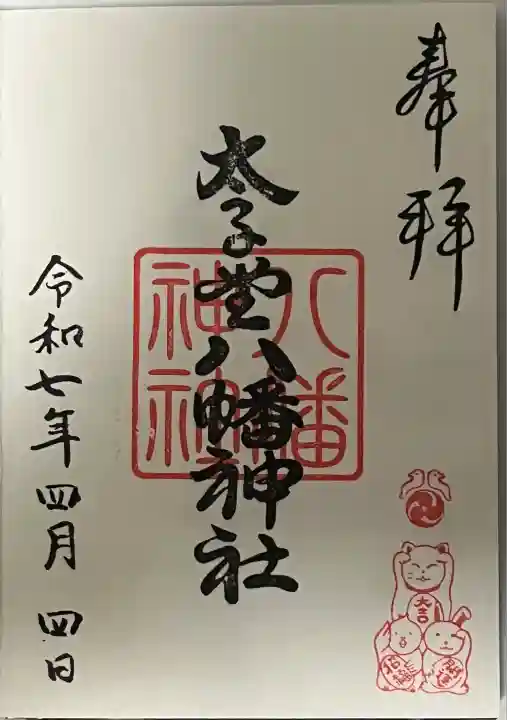 奉拝
太子堂八幡神社
八幡神社
令和七年四月四日
大吉
招福